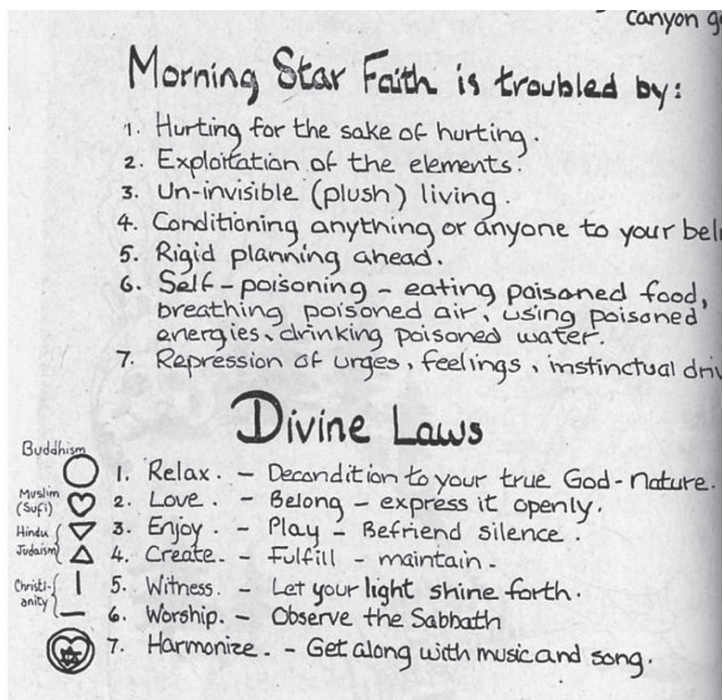 canyon
Morning Star Faith is troubled by:
1. Hurting for the sake of hurting.
2. Exploitation of the elements.
3. Un-invisible (plush) living.
4. Conditioning anything or anyone to your
5. Rigid planning ahead.
6. Self-poisoning - eating poisoned food,
breathing poisoned air, using poisoned
energies, drinking poisoned water.
7. Repression of urges, feelings, instinctual
Divine Laws
Buddhism
1. Relax. - Decondition to your true God-nature.
Muslim
(Sufi)
2. Love. - Belong - express it openly.
Hindu
3. Enjoy. - Play - Befriend silence.
Judaism
4. Create. - Fulfill - maintain.
Christi-
anity
5. Witness. - Let your light shine forth.
6. Worship. - Observe the Sabbath
7. Harmonize. - Get along with music and song.